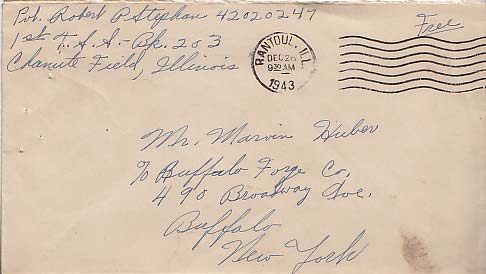 Pvt. Robert P Stephan 42020247
Free
1st T. S. S. - Bk. 203
Chanute Field, Illinois
RANTOUL, ILL.
DEC 28
9 30 AM
1943
Mr. Marvin Huber
℅ Buffalo Forge Co.
490 Broadway Ave.
Buffalo
New York